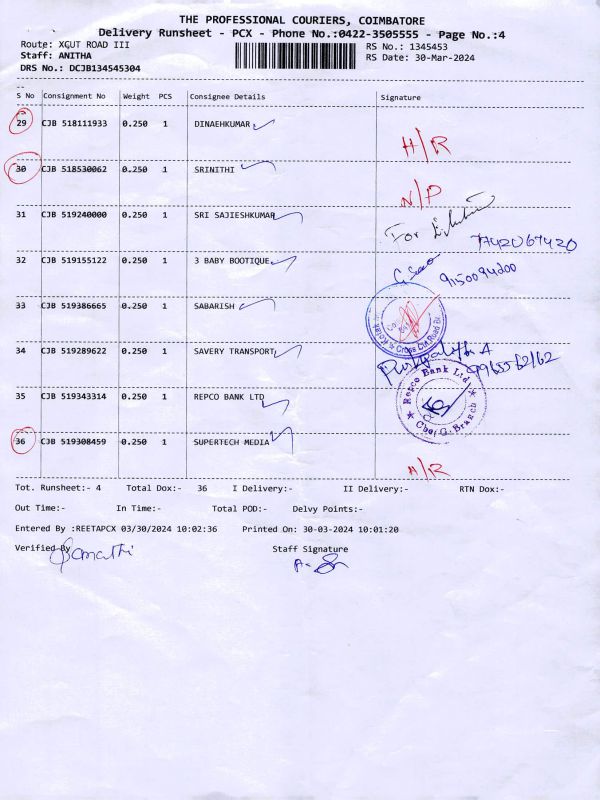 THE PROFESSIONAL COURIERS, COIMBATORE
Delivery Runsheet - PCX - Phone No.:0422-3505555 - Page No.:4
Route: XCUT ROAD III RS No.: 1345453
Staff: ANITHA RS Date: 30-Mar-2024
DRS No.: DCJB134545304
S No Consignment No Weight PCS Consignee Details Signature
29 CJB 518111933 0.250 1 DINAEHKUMAR
H/R
30 CJB 518530062 0.250 1 SRINITHI
N/P
31 CJB 519240000 0.250 1 SRI SAJIESHKUMAR
For
7742067420
32 CJB 519155122 0.250 1 3 BABY BOOTIQUE
9150094200
33 CJB 519386665 0.250 1 SABARISH
Cross Cut Road Br
34 CJB 519289622 0.250 1 SAVERY TRANSPORT
35 CJB 519343314 0.250 1 REPCO BANK LTD
Repco Bank Ltd
Branch
36 CJB 519308459 0.250 1 SUPERTECH MEDIA
H/R
Tot. Runsheet:- 4 Total Dox:- 36 I Delivery:- II Delivery:- RTN Dox:-
Out Time:- In Time:- Total POD:- Delvy Points:-
Entered By :REETAPCX 03/30/2024 10:02:36 Printed On: 30-03-2024 10:01:20
Verified By Staff Signature